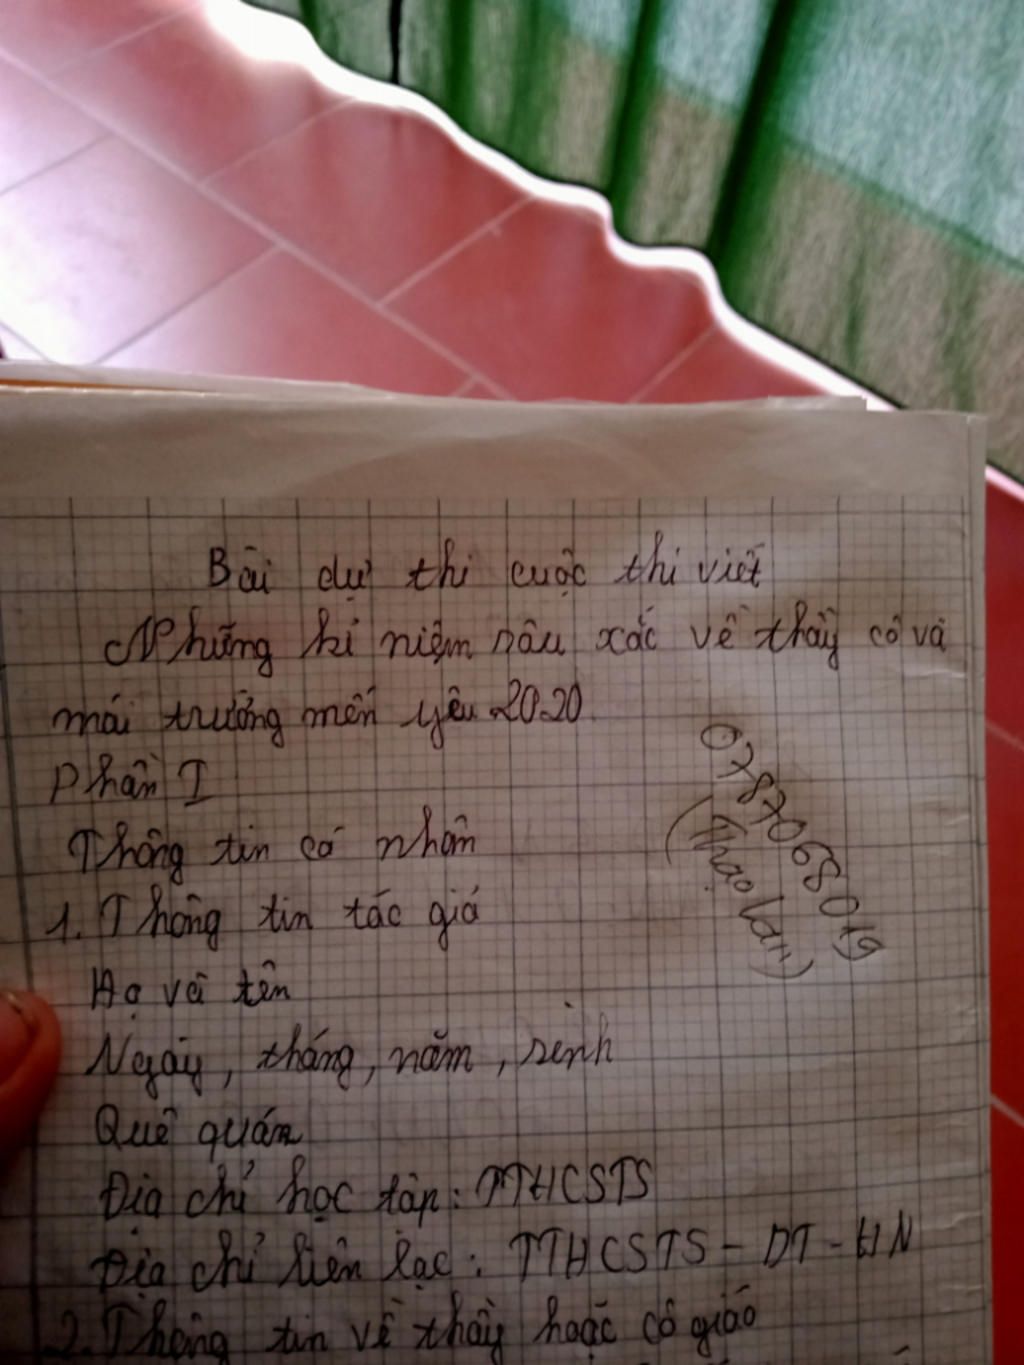 Bài dự thi cuộc thi viết
Những kỉ niệm sâu xắc về thầy cô và
mái trường mến yêu 2020.
Phần I
Thông tin cá nhân
1. Thông tin tác giả
Họ và tên
Ngày, tháng, năm, sinh
Quê quán
Địa chỉ học tập: TTHCSTS
Địa chỉ liên lạc: TTHCSTS - DT - HN
2. Thông tin về thầy hoặc cô giáo
0787068019
(Thảo Vân)